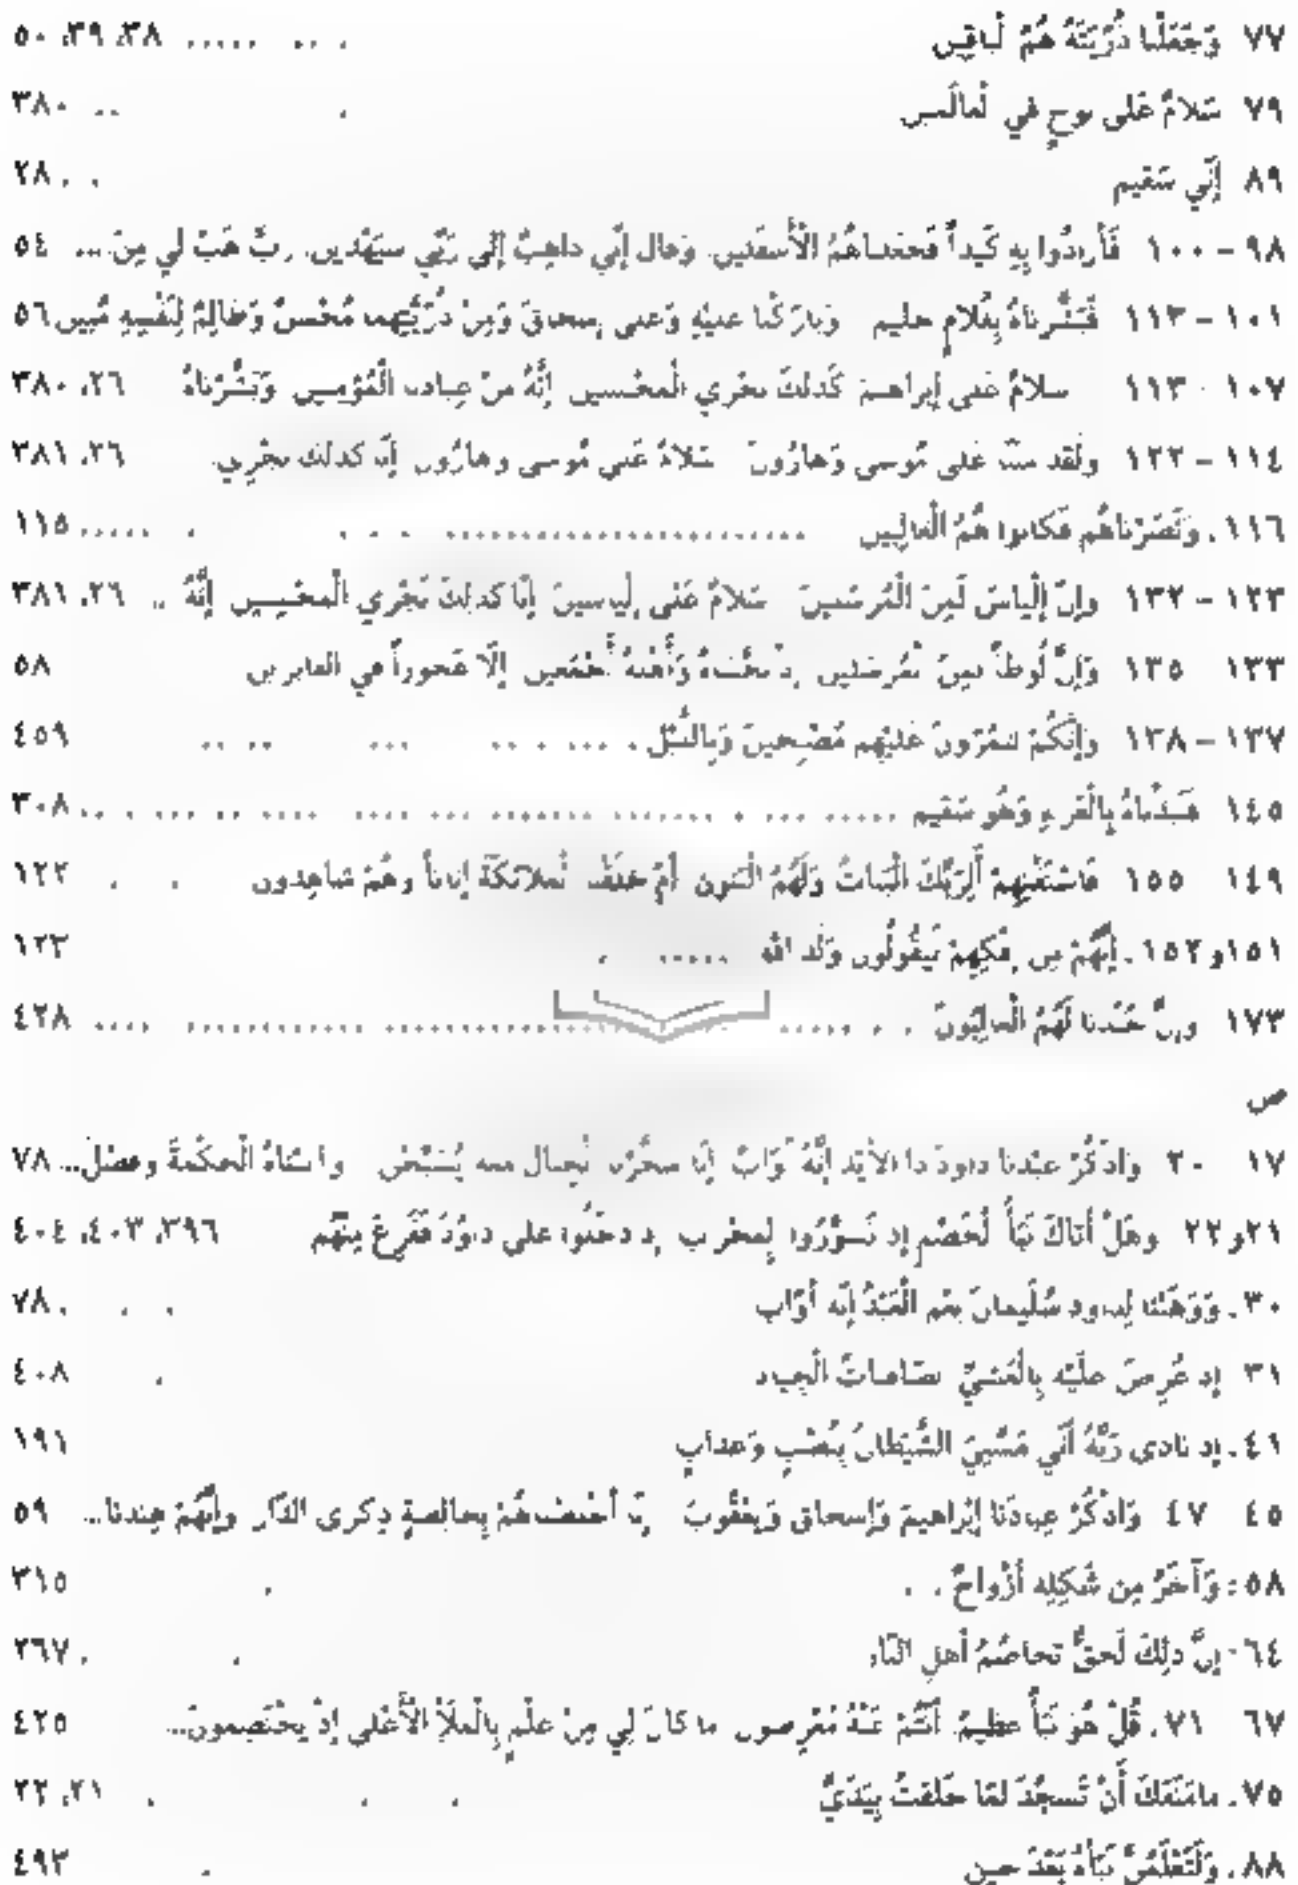 ٧٧ وَجَعَلْنا ذُرِّيَّتَهُ هُمُ لْباقِين ..... ٣٨، ٣٩، ٥٠
٧٩ سَلامٌ عَلى نوحٍ في لْعالَمين .. ٣٨٠
٨٩ إِنّي سَقيم .. ٢٨
٩٨ – ١٠٠ فَأَرادُوا بِهِ كَيْداً فَجَعَلناهُمُ الْأَسفَلين. وَقال إِنّي ذاهِبٌ إِلى رَبّي سيَهْدين. ربِّ هَبْ لي مِنَ ... ٥٤
١٠١ – ١١٣ فَبَشَّرناهُ بِغُلامٍ حليم وَبارَكْنا عليْهِ وَعَلى إِسحاقَ وَمِنْ ذُرِّيَّتِهِما مُحْسنٌ وَظالِمٌ لِنَفْسِهِ مُبين ٥٦
١٠٧ - ١١٣ سلامٌ عَلى إِبراهيمَ كَذلكَ نجْزي الْمحْسنين إِنَّهُ منْ عِبادنا الْمُؤمِنين وَبَشَّرْناهُ ٢٦، ٣٨٠
١١٤ – ١٢٢ ولَقد مننّا عَلى مُوسى وَهارُونَ سَلامٌ عَلى مُوسى وهارُون إِنّا كذلك نجْزِي ٢٦، ٣٨١
١١٦ . وَنَصَرْناهُم فَكانوا هُمُ الْغالِبين ..... ١١٥
١٢٣ – ١٣٢ وإِنّ إِلْياسَ لَمِنَ الْمُرسَلينَ سَلامٌ عَلى إِلياسينَ إِنّا كذلِكَ نَجْزي الْمحْسِنين إِنَّهُ .. ٢٦، ٣٨١
١٣٣ ١٣٥ وَإِنَّ لُوطاً لمِنَ لْمُرسَلين إِذْ نجَّيْناهُ وَأَهْلهُ أَجْمَعين إِلّا عَجوزاً في الغابرين ٥٨
١٣٧ – ١٣٨ وَإِنَّكُمْ لتمُرّونَ عَليْهِم مُصْبِحينَ وَبِاللَّيْل ..... ٤٥٩
١٤٥ فنَبَذْناهُ بِالْعَراءِ وَهُو سَقيم ..... ٣٠٨
١٤٩ ١٥٥ فَاسْتَفْتِهِمْ أَلِرَبِّكَ الْبَناتُ وَلَهُمُ الْبَنون أَمْ خلَقْنا لْملائكَةَ إِناثاً وهُمْ شاهِدون ١٢٢
١٥١و ١٥٢ . إِنَّهُمْ مِن إِفكِهِمْ لَيَقُولُون وَلَد الله ..... ١٢٣
١٧٣ وإِنَّ جُنْدنا لَهُمُ الْغالِبُونَ ..... ٤٢٨
ص
١٧ ٢٠ وَاذْكُرْ عبْدنا داودَ ذا الأَيْد إِنَّهُ أَوّابٌ إِنّا سخَّرْنا لْجِبال معه يُسَبِّحْن وآتيْناهُ الْحكْمةَ وفصْل... ٧٨
٢١و ٢٢ وهَلْ أَتاكَ نَبَأُ لْخَصْمِ إِذ تَسوَّرُوا لْمِحْراب إِذ دخَلُوا على داوُدَ فَفَزِعَ مِنْهُم ٣٩٦، ٤٠٣، ٤٠٤
٣٠ . وَوَهَبْنا لِداوود سُلَيمانَ نِعْم الْعَبْدُ إِنّه أَوّاب ٧٨
٣١ إِذ عُرِضَ علَيْه بِالْعَشيّ الصّافناتُ الْجِياد ٤٠٨
٤١ . إِذ نادى رَبَّهُ أَنّي مَسَّنِيَ الشَّيْطانُ بِنُصْبٍ وَعذابٍ ١٩١
٤٥ ٤٧ وَاذْكُرْ عِبادَنا إِبْراهيمَ وَإِسحاق وَيعْقُوبَ إِنّا أَخْلَصْناهُمْ بِخالِصةٍ ذِكرى الدّار وإِنَّهُمْ عِندنا... ٥٩
٥٨ : وَآخَرُ مِن شَكلِه أَزْواجٌ . . ٣١٥
٦٤ - إِنَّ ذلِكَ لَحقٌّ تخاصُمُ أَهلِ النّار ٢٦٧
٦٧ ٧١ . قُلْ هُوَ نَبَأٌ عظيمٌ. أَنتُمْ عَنْهُ مُعْرِضون ما كانَ لِي مِنْ علْمٍ بِالْملَأ الْأَعْلى إِذْ يخْتَصِمونَ... ٤٢٥
٧٥ . مامَنَعَكَ أَنْ تَسجُدَ لمَا خَلقتُ بِيَدَيَّ ٢١، ٢٢
٨٨ . وَلَتَعْلَمُنَّ نَبَأَهُ بَعْدَ حين ٤٩٣